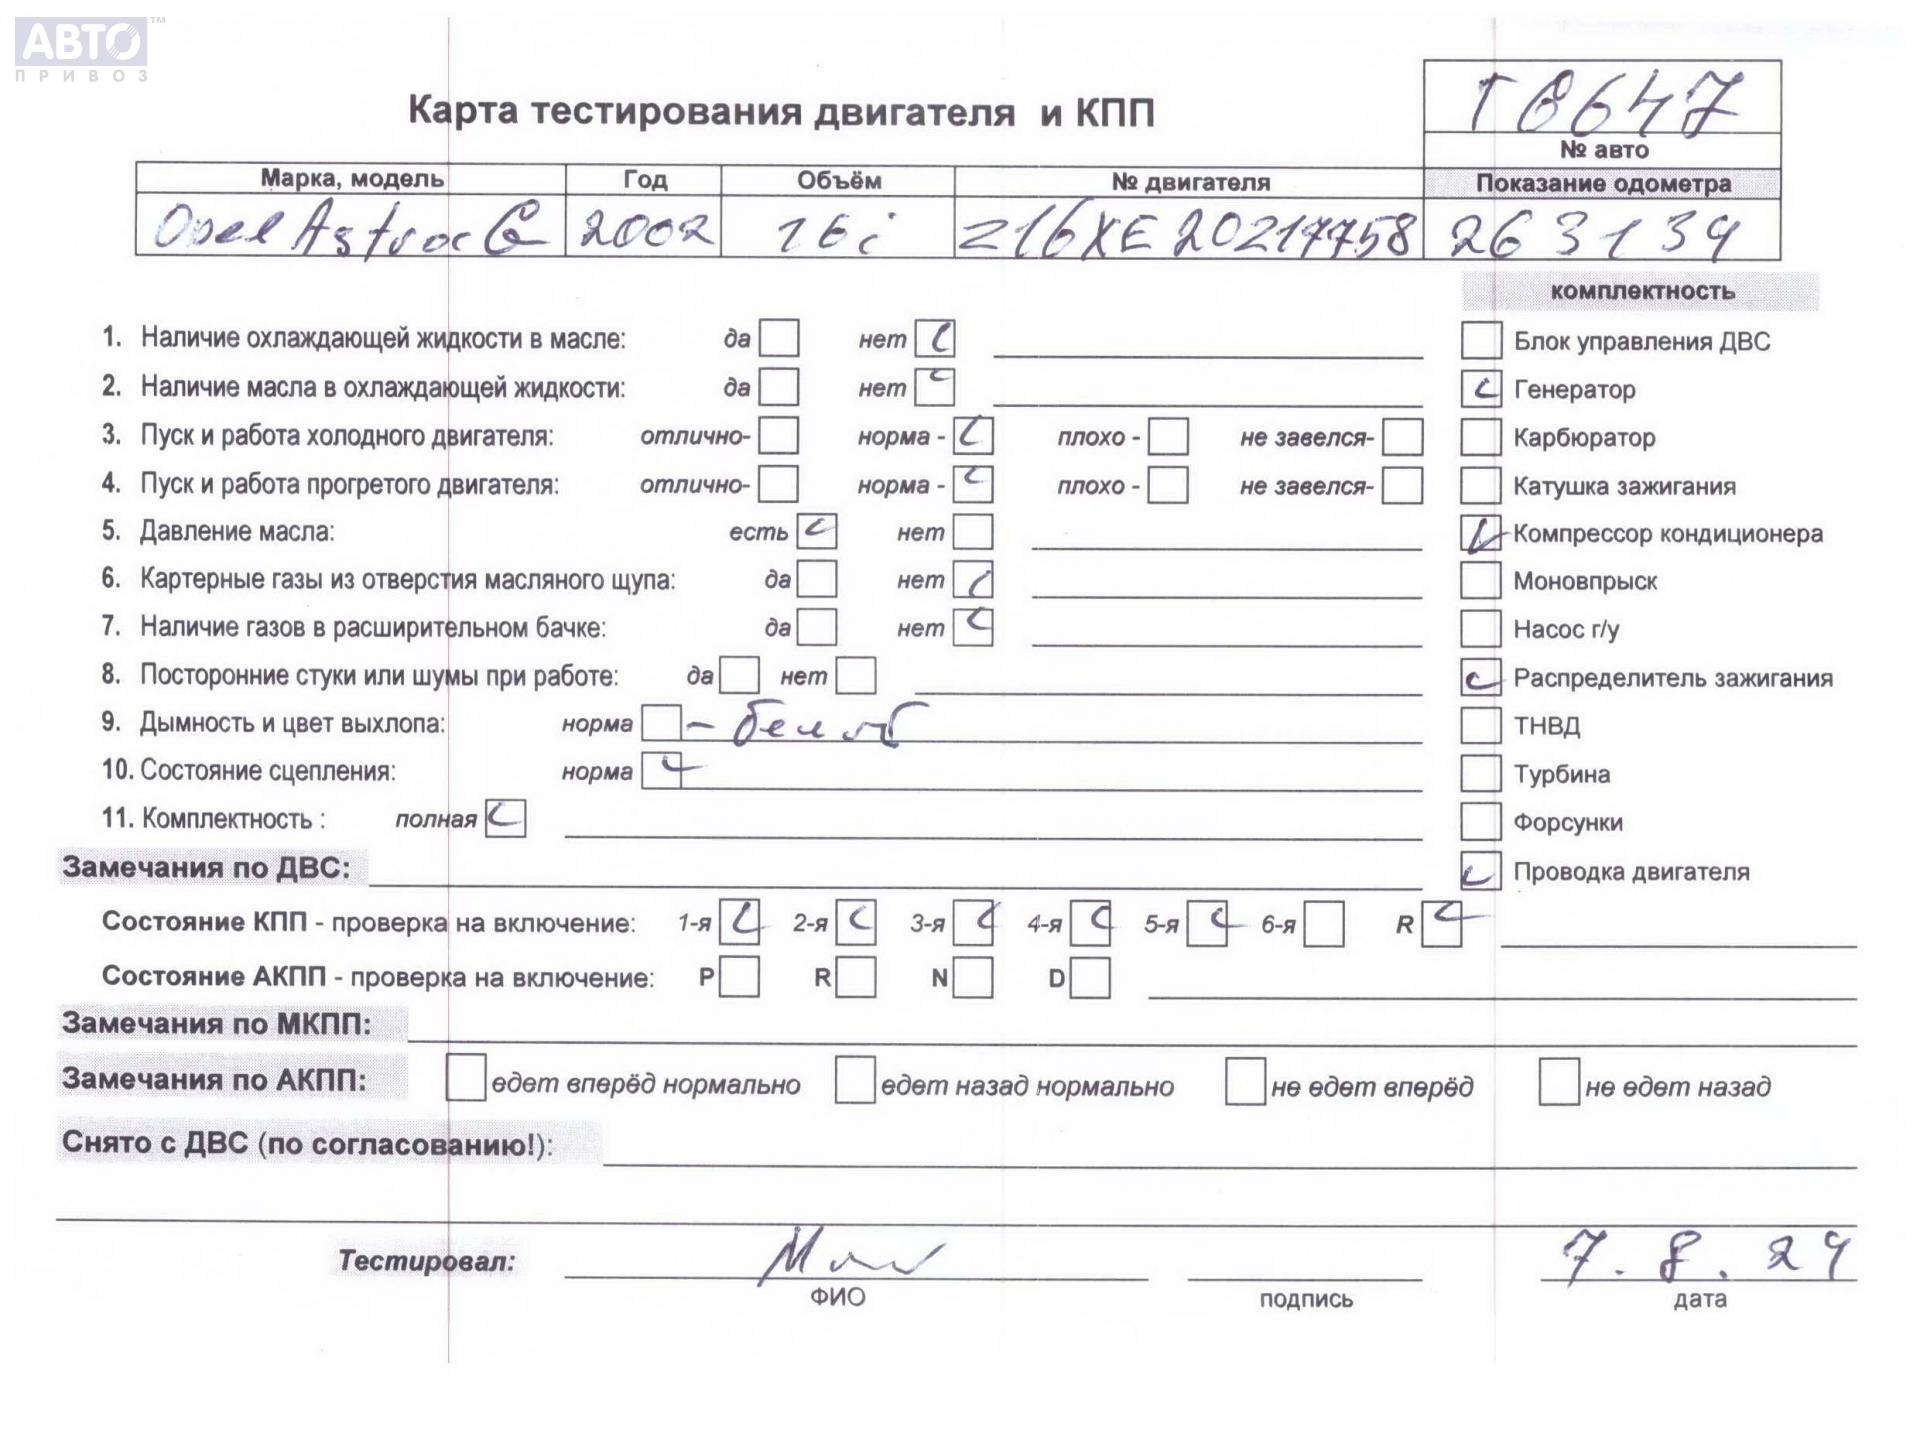 АВТО™
ПРИВОЗ
Карта тестирования двигателя и КПП
T8647
№ авто
Марка, модель Год Объём № двигателя Показание одометра
Opel Astra G 2002 16i Z16XE20217758 263134
комплектность
1. Наличие охлаждающей жидкости в масле: да нет
Блок управления ДВС
2. Наличие масла в охлаждающей жидкости: да нет
Генератор
3. Пуск и работа холодного двигателя: отлично- норма - плохо - не завелся-
Карбюратор
4. Пуск и работа прогретого двигателя: отлично- норма - плохо - не завелся-
Катушка зажигания
5. Давление масла: есть нет
Компрессор кондиционера
6. Картерные газы из отверстия масляного щупа: да нет
Моновпрыск
7. Наличие газов в расширительном бачке: да нет
Насос г/у
8. Посторонние стуки или шумы при работе: да нет
Распределитель зажигания
9. Дымность и цвет выхлопа: норма
ТНВД
10. Состояние сцепления: норма
Турбина
11. Комплектность : полная
Форсунки
Замечания по ДВС:
Проводка двигателя
Состояние КПП - проверка на включение: 1-я 2-я 3-я 4-я 5-я 6-я R
Состояние АКПП - проверка на включение: P R N D
Замечания по МКПП:
Замечания по АКПП: едет вперёд нормально едет назад нормально не едет вперёд не едет назад
Снято с ДВС (по согласованию!):
Тестировал: 7.8.24
ФИО подпись дата